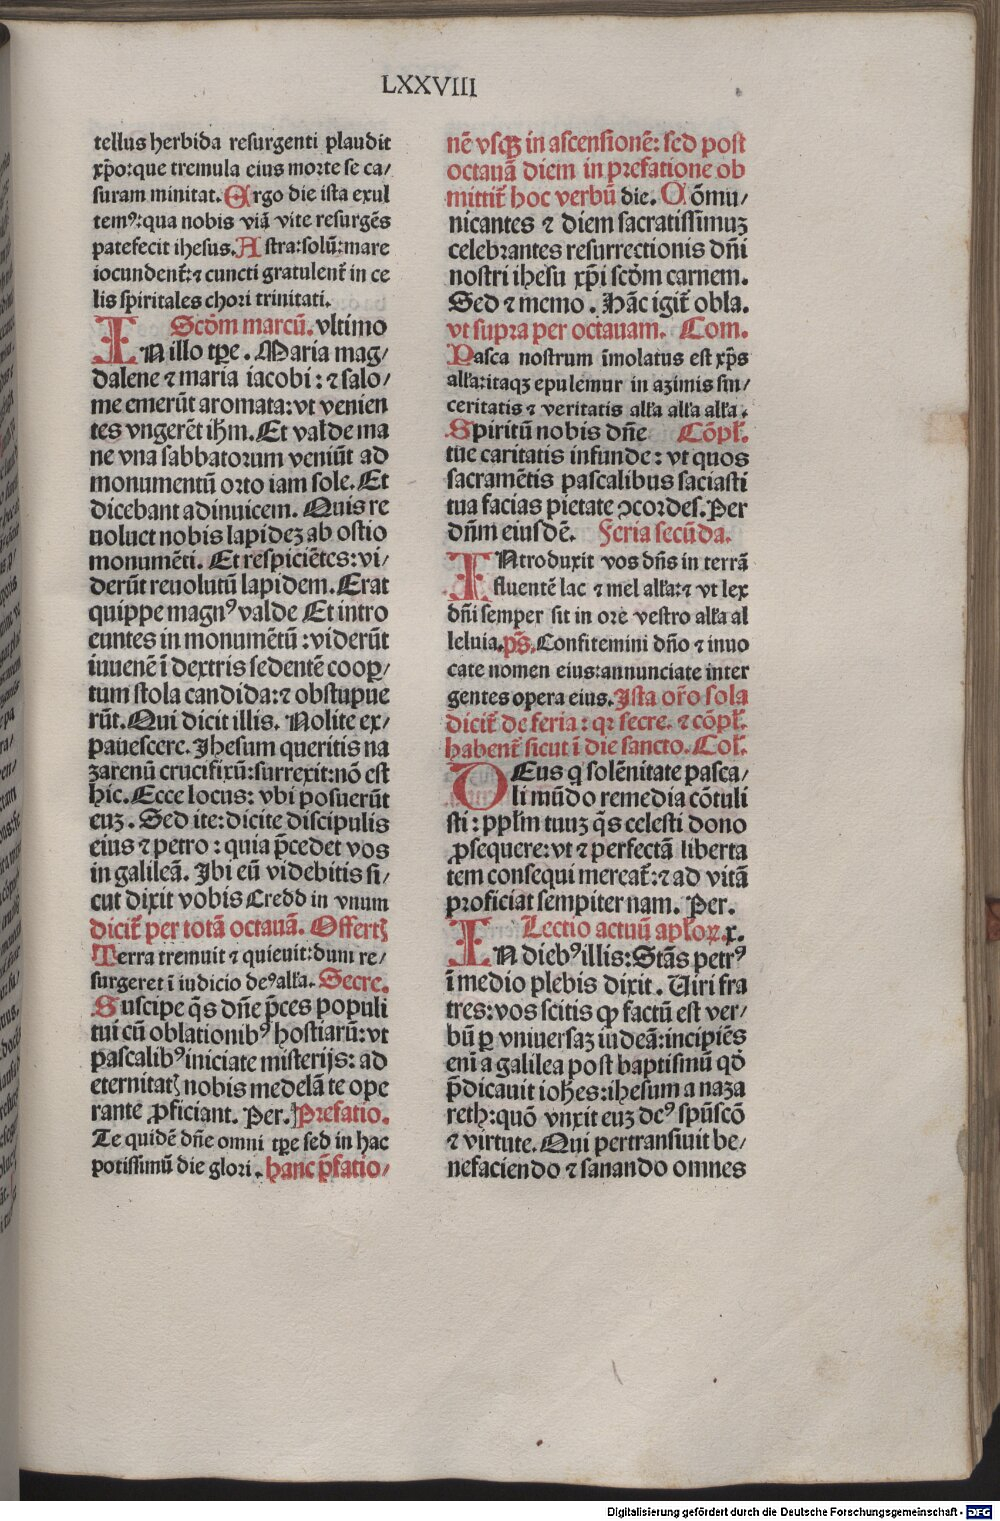 LXXVIII
tellus herbida resurgenti plaudit
xp̄o:que tremula eius morte se ca/
suram minitat. Ergo die ista exul
temꝰ:qua nobis viā vite resurgēs
patefecit ihesus. Astra:solū:mare
iocundent̄:⁊ cuncti gratulent̄ in ce
lis spiritales chori trinitati.
Scd̄m marcū. vltimo
IN illo tp̄e. Maria mag/
dalene ⁊ maria iacobi: ⁊ salo/
me emerūt aromata: vt venien
tes vngerēt ih̄m. Et valde ma
ne vna sabbatorum veniūt ad
monumentū orto iam sole. Et
dicebant adinuicem. Quis re
uoluet nobis lapideꝫ ab ostio
monumēti. Et respiciētes: vi/
derūt reuolutū lapidem. Erat
quippe magnꝰ valde Et intro
euntes in monumētū: viderūt
iuuenē ī dextris sedentē coop̄/
tum stola candida: ⁊ obstupue
rūt. Qui dicit illis. Nolite ex/
pauescere. Ihesum queritis na
zarenū crucifixū: surrexit: nō est
hic. Ecce locus: vbi posuerūt
euꝫ. Sed ite: dicite discipulis
eius ⁊ petro: quia p̄cedet vos
in galileā. Ibi eū videbitis si/
cut dixit vobis Credo in vnum
dicit̄ per totā octauā. Offertꝭ
Terra tremuit ⁊ quieuit: dum re/
surgeret ī iudicio deꝰ all̄a. Secre.
Suscipe q̄s dn̄e p̄ces populi
tui cū oblationibꝰ hostiarū: vt
pascalibꝰ iniciate misterijs: ad
eternitatꝭ nobis medelā te ope
rante ꝓficiant. Per. Prefatio.
Te quidē dn̄e omni tp̄e sed in hac
potissimū die glori. hanc p̄fatio/
nē vsqꝫ in ascensionē: sed post
octauā diem in prefatione ob
mittit̄ hoc verbū die. Cōmu/
nicantes ⁊ diem sacratissimuꝫ
celebrantes resurrectionis dn̄i
nostri ihesu xp̄i scd̄m carnem.
Sed ⁊ memo. Hāc igit̄ obla.
vt supra per octauam. Com.
Pasca nostrum īmolatus est xp̄s
all̄a: itaqꝫ epulemur in azimis sin/
ceritatis ⁊ veritatis all̄a all̄a all̄a.
Spiritū nobis dn̄e Cōpl̄.
tue caritatis infunde: vt quos
sacramētis pascalibus saciasti
tua facias pietate ↄcordes. Per
dn̄m eiusdē. Feria secūda.
INtroduxit vos dn̄s in terrā
fluentē lac ⁊ mel all̄a: ⁊ vt lex
dn̄i semper sit in ore vestro all̄a al
leluia. p̄s. Confitemini dn̄o ⁊ inuo
cate nomen eius: annunciate inter
gentes opera eius. Ista or̄o sola
dicit̄ de feria: qꝛ secre. ⁊ cōpl̄.
habent̄ sicut ī die sancto. Col̄.
DEus q̄ solēnitate pasca/
li mūdo remedia cōtuli
sti: pp̄lm tuuꝫ q̄s celesti dono
ꝓsequere: vt ⁊ perfectā liberta
tem consequi mereat̄: ⁊ ad vitā
proficiat sempiternam. Per.
Lectio actuū apl̄oꝝ. x.
IN diebꝰ illis: Stās petrꝰ
ī medio plebis dixit. Uiri fra
tres: vos scitis ꝙ factū est ver/
bū ꝑ vniuersaꝫ iudeā: incipiēs
eni ̄a galilea post baptismū qd̄
p̄dicauit ioh̄es: ihesum a naza
reth: quō vnxit euꝫ deꝰ spū scō
⁊ virtute. Qui pertransiuit be/
nefaciendo ⁊ sanando omnes
Digitalisierung gefördert durch die Deutsche Forschungsgemeinschaft - DFG